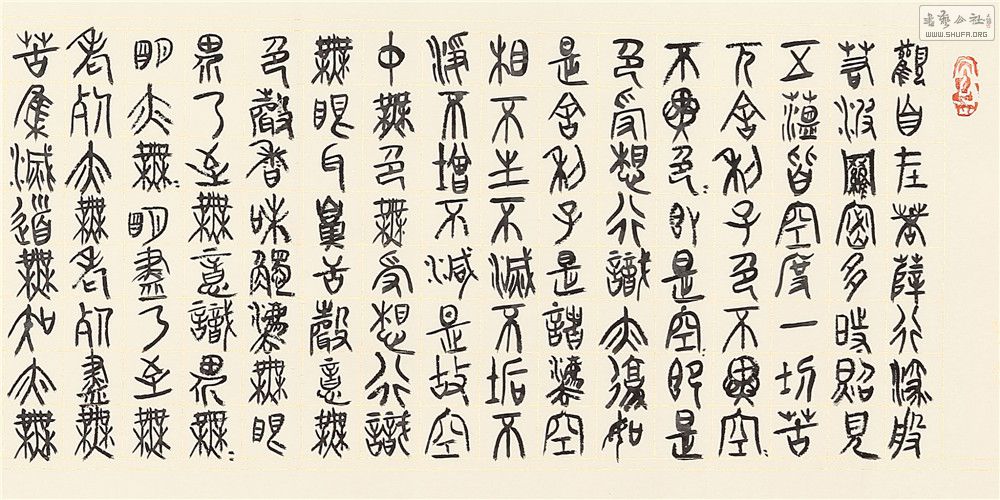 觀自在菩薩行深般
若波羅密多時照見
五蘊皆空度一切苦
厄舍利子色不異空〻
不異色〻即是空〻即是
色受想行識亦復如
是舍利子是諸法空
相不生不滅不垢不
淨不增不減是故空
中無色無受想行識
無眼耳鼻舌聲意無
色聲香味觸法無眼
界乃至無意識界無〻
明亦無〻明盡乃至無
老死亦無老死盡無
苦集滅道無知亦無
书艺公社
WWW.SHUFA.ORG